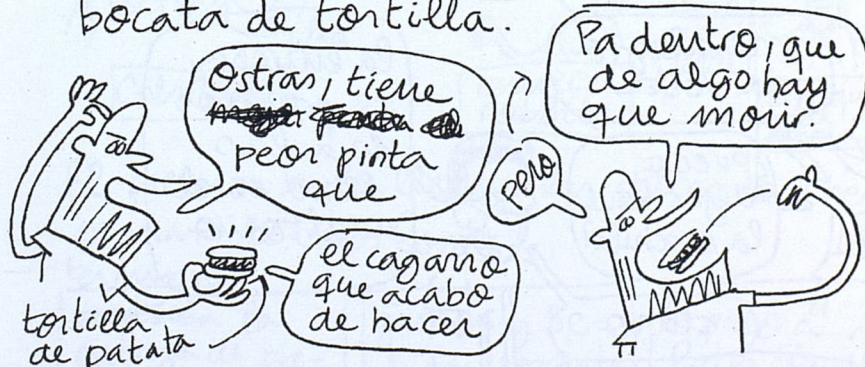 bocata de tortilla.
Ostras, tiene
peor pinta
que
el cagarro
que acabo
de hacer
tortilla
de patata
pero
Pa dentro, que
de algo hay
que morir.